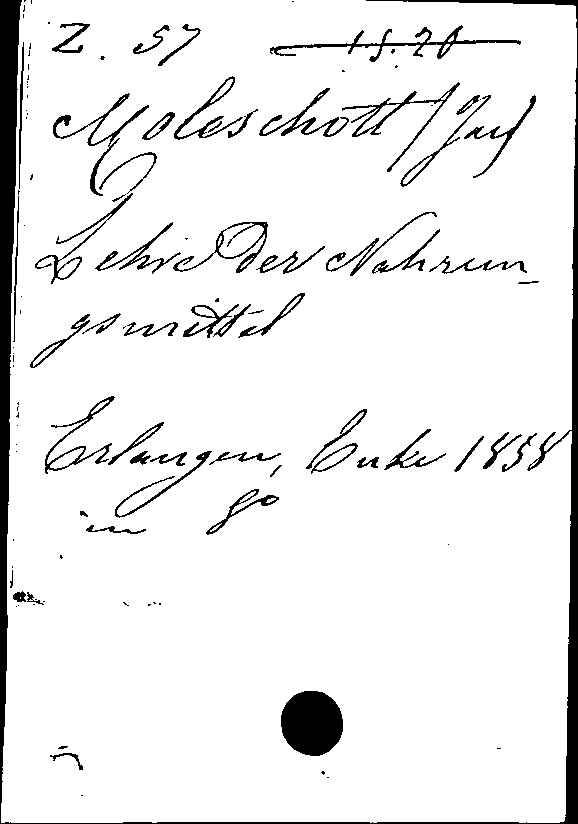 Z. 57 15.20
Moleschott (Jac)
Lehre der Nahrun-
gsmittel
Erlangen, Enke 1858
in 8°